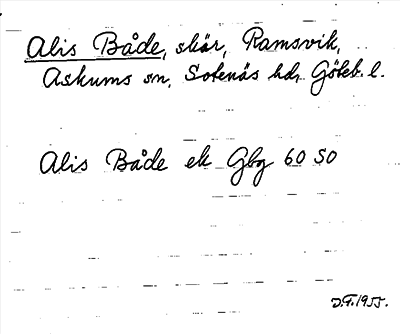 Alis Både, skär, Ramsvik,
Askums sn, Sotenäs hd, Göteb. l.
Alis Både ek Gbg 60 SO
D.F. 1955.